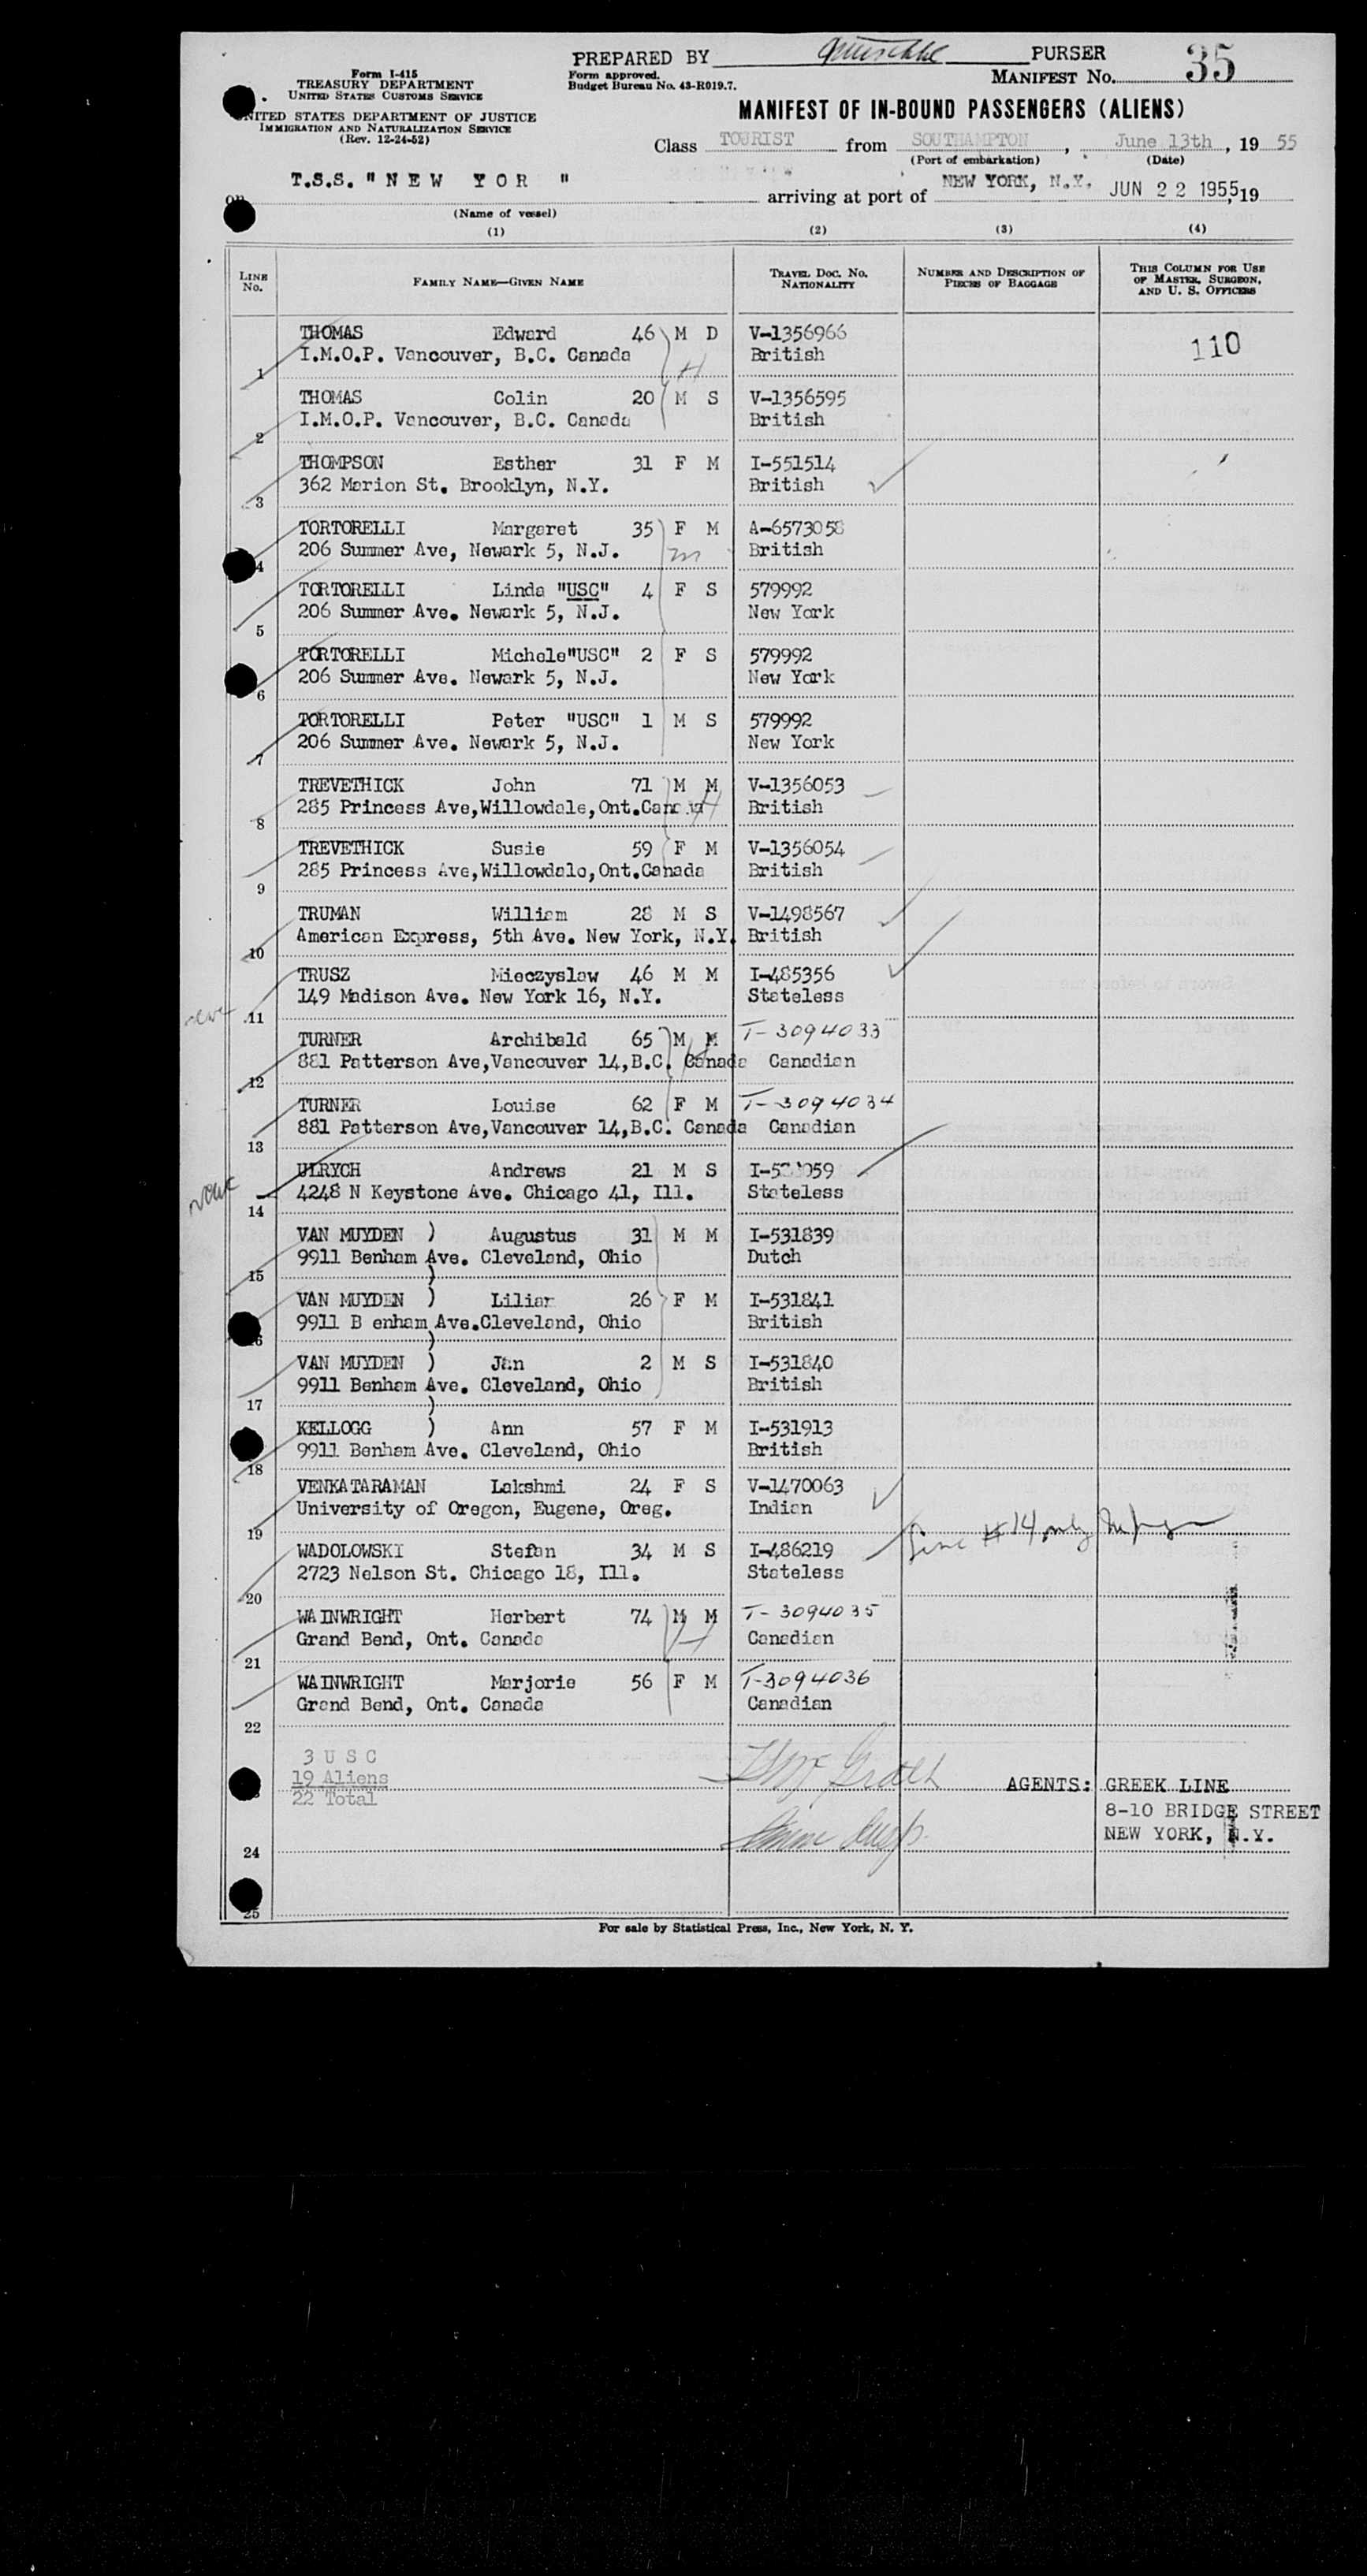 PREPARED BY PURSER
Form I-415
TREASURY DEPARTMENT
UNITED STATES CUSTOMS SERVICE
Form approved.
Budget Bureau No. 43-R019.7.
MANIFEST NO. 35
UNITED STATES DEPARTMENT OF JUSTICE
IMMIGRATION AND NATURALIZATION SERVICE
(Rev. 12-24-52)
MANIFEST OF IN-BOUND PASSENGERS (ALIENS)
Class TOURIST from SOUTHAMPTON, June 13th, 19 55
(Port of embarkation) (Date)
T.S.S. "NEW YOR "
on arriving at port of NEW YORK, N.Y. JUN 22 1955, 19
(Name of vessel)
(1) (2) (3) (4)
LINE NO. FAMILY NAME—GIVEN NAME TRAVEL DOC. NO. NATIONALITY NUMBER AND DESCRIPTION OF PIECES OF BAGGAGE THIS COLUMN FOR USE OF MASTER, SURGEON, AND U. S. OFFICERS
THOMAS Edward 46 M D V-1356966 110
1 I.M.O.P. Vancouver, B.C. Canada British
H
THOMAS Colin 20 M S V-1356595
2 I.M.O.P. Vancouver, B.C. Canada British
THOMPSON Esther 31 F M I-551514
3 362 Marion St. Brooklyn, N.Y. British
TORTORELLI Margaret 35 F M A-6573058
4 206 Summer Ave, Newark 5, N.J. m British
TORTORELLI Linda "USC" 4 F S 579992
5 206 Summer Ave. Newark 5, N.J. New York
TORTORELLI Michele"USC" 2 F S 579992
6 206 Summer Ave. Newark 5, N.J. New York
TORTORELLI Peter "USC" 1 M S 579992
7 206 Summer Ave. Newark 5, N.J. New York
TREVETHICK John 71 M M V-1356053
8 285 Princess Ave,Willowdale,Ont.Canada H British
TREVETHICK Susie 59 F M V-1356054
9 285 Princess Ave,Willowdale,Ont.Canada British
TRUMAN William 28 M S V-1498567
10 American Express, 5th Ave. New York, N.Y. British
TRUSZ Mieczyslaw 46 M M I-485356
11 149 Madison Ave. New York 16, N.Y. Stateless
TURNER Archibald 65 M M T-3094033
12 881 Patterson Ave,Vancouver 14,B.C. Canada Canadian
TURNER Louise 62 F M T-3094034
13 881 Patterson Ave,Vancouver 14,B.C. Canada Canadian
ULRYCH Andrews 21 M S
14 4248 N Keystone Ave. Chicago 41, Ill. Stateless
VAN MUYDEN ) Augustus 31 M M I-531839
15 9911 Benham Ave. Cleveland, Ohio Dutch
)
VAN MUYDEN ) Lilian 26 F M I-531841
16 9911 B enham Ave.Cleveland, Ohio British
)
VAN MUYDEN ) Jan 2 M S I-531840
17 9911 Benham Ave. Cleveland, Ohio British
)
KELLOGG ) Ann 57 F M I-531913
18 9911 Benham Ave. Cleveland, Ohio British
VENKATARAMAN Lakshmi 24 F S V-1470063
19 University of Oregon, Eugene, Oreg. Indian
Line #14 only
WADOLOWSKI Stefan 34 M S I-486219
20 2723 Nelson St. Chicago 18, Ill. Stateless
WAINWRIGHT Herbert 74 M M T-3094035
21 Grand Bend, Ont. Canada H Canadian
WAINWRIGHT Marjorie 56 F M T-3094036
22 Grand Bend, Ont. Canada Canadian
3 U S C
19 Aliens
22 Total
AGENTS: GREEK LINE
8-10 BRIDGE STREET
NEW YORK, N.Y.
24
25
For sale by Statistical Press, Inc., New York, N. Y.